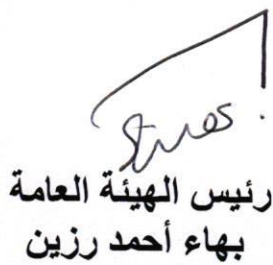 رئيس الهيئة العامة
بهاء أحمد رزين